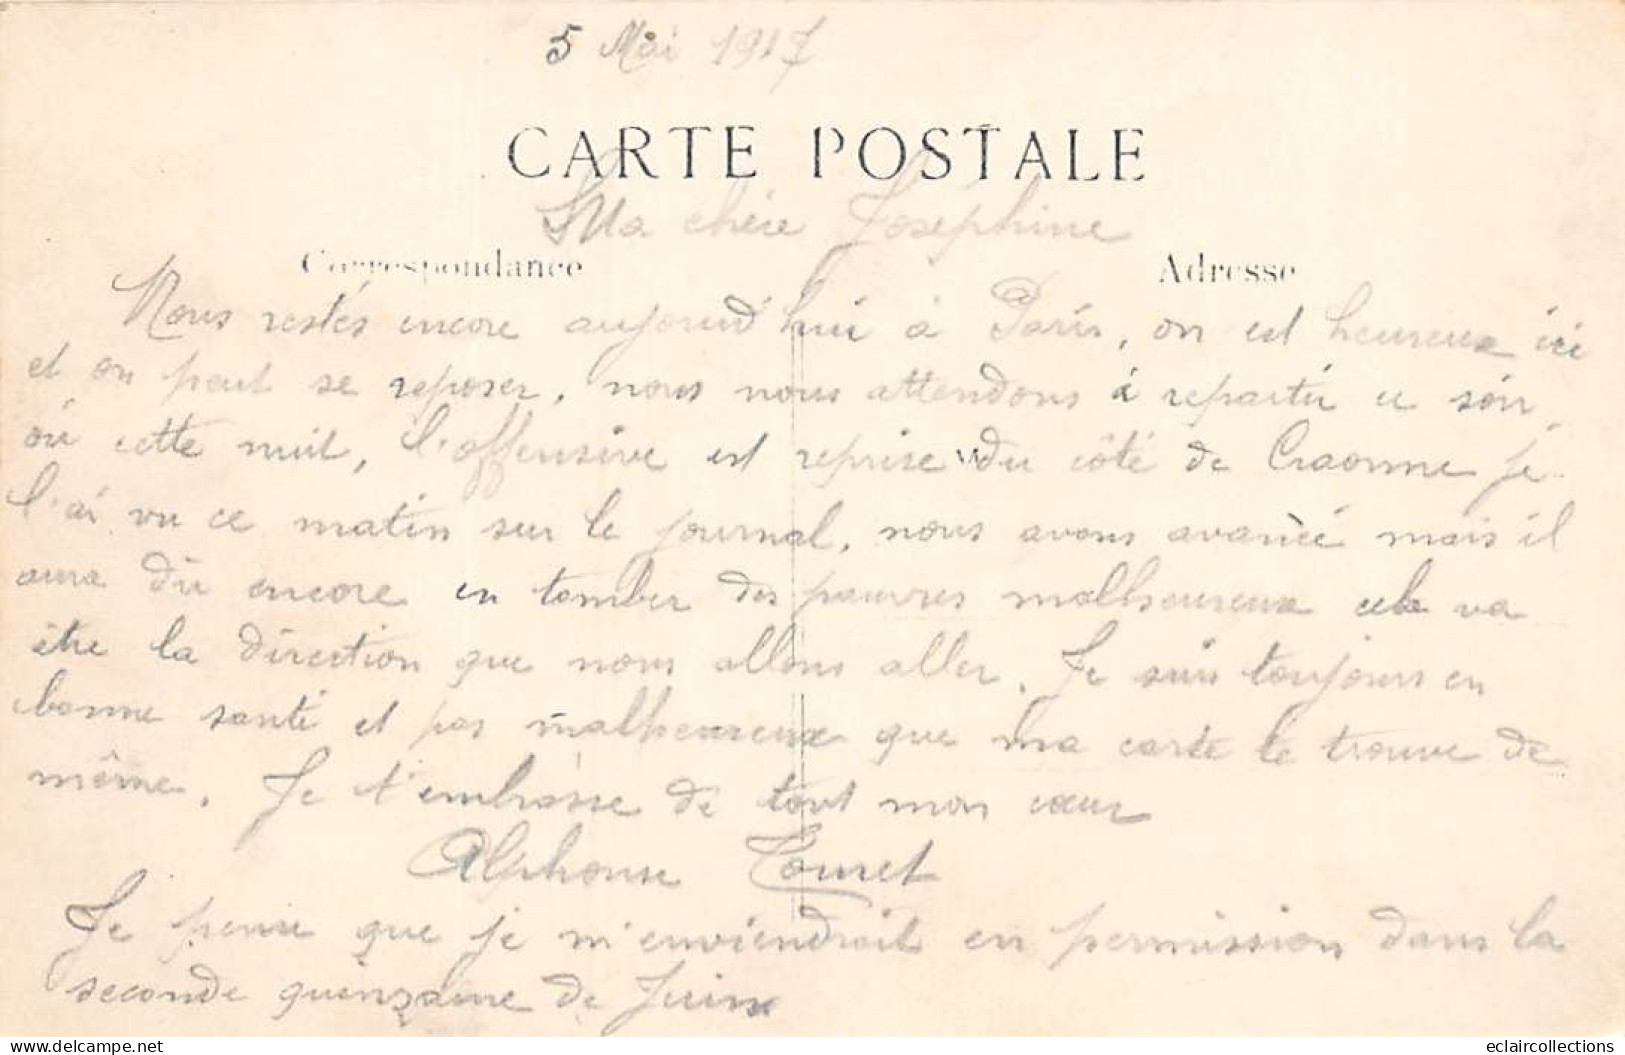 5 Mai 1917
CARTE POSTALE
Ma chère Joséphine
Correspondance
Adresse
Nous restés encore aujourd'hui à Paris, on est heureux ici
et on peut se reposer, nous nous attendons à repartir ce soir
où cette nuit, l'offensive est reprise du côté de Craonne je
l'ai vu ce matin sur le journal, nous avons avancé mais il
aura dû encore en tomber des pauvres malheureux cela va
être la direction que nous allons aller. Je suis toujours en
bonne santé et pas malheureux que ma carte te trouve de
même. Je t'embrasse de tout mon cœur
Alphonse Touret
Je pense que je m'enviendrait en permission dans la
seconde quinzaine de Juin
Tous droits réservés
eclaircollections